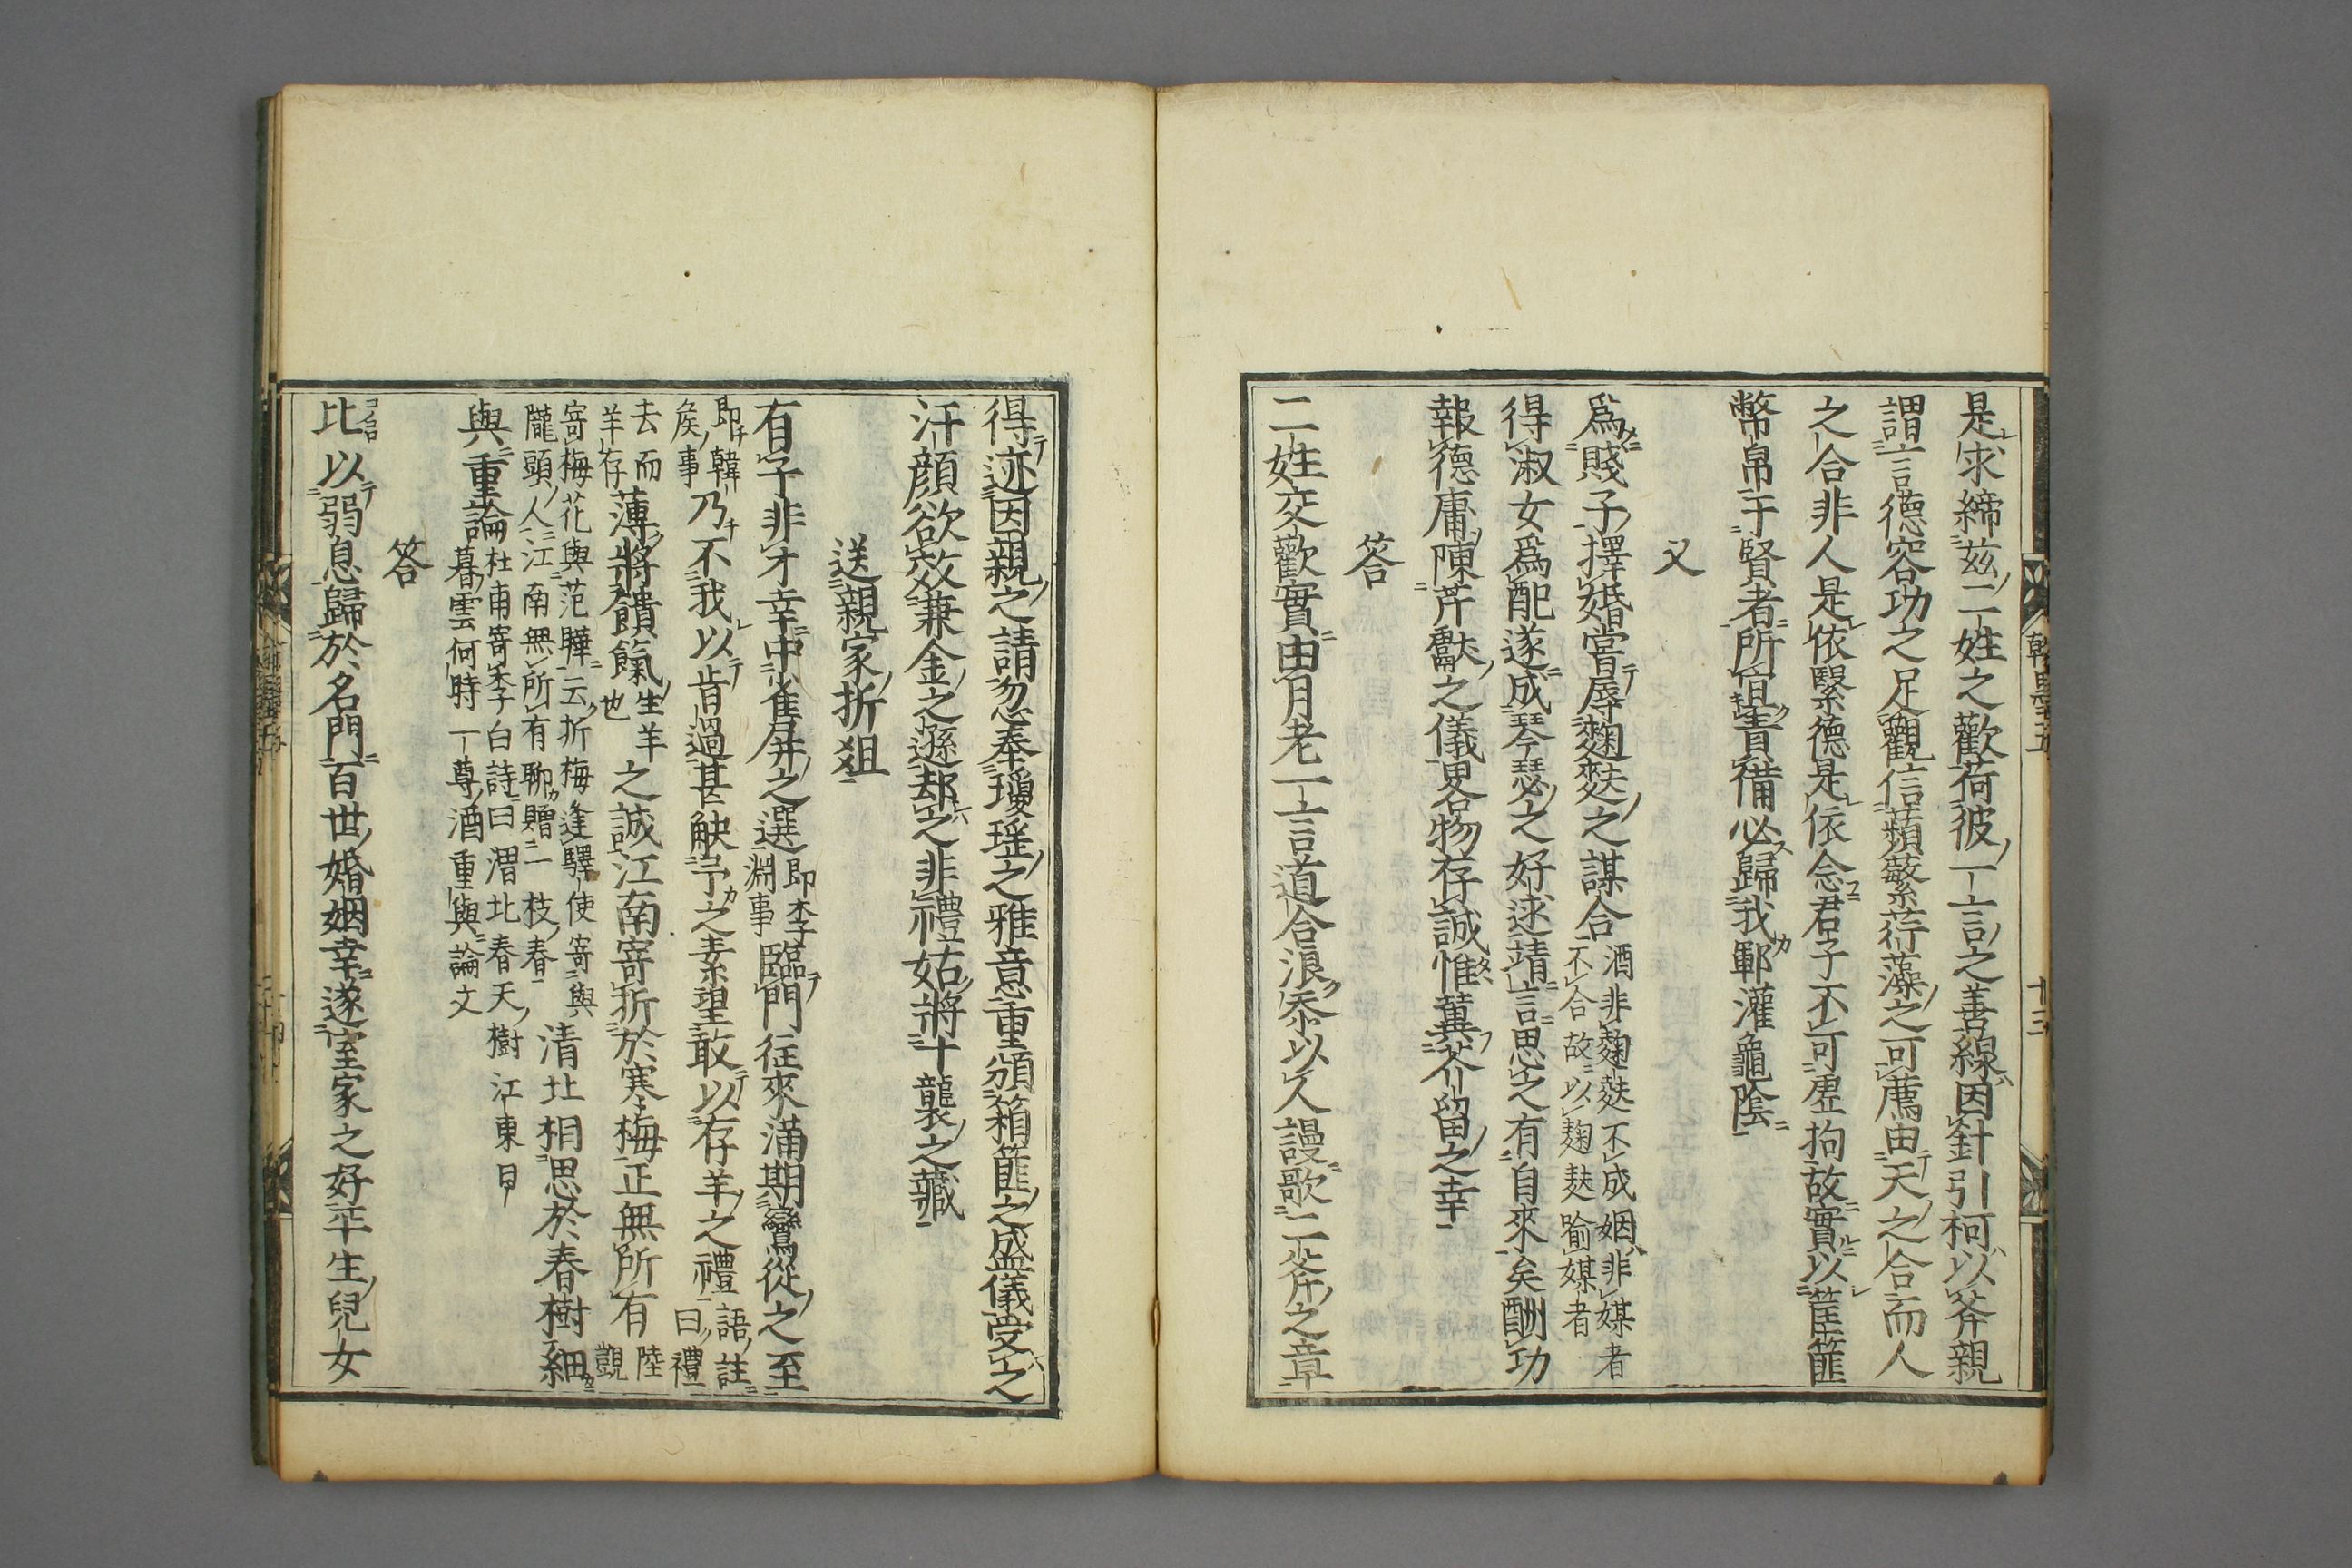 是求締茲二姓之歡荷彼一言之善線因針引柯以斧親
謂言德容功之足觀信蘋蘩荇藻之可薦由天之合而人
之合非人是依緊德是依念君子不可虛拘故實以筐篚
幣帛于賢者所宜責備必歸我鄆灌龜陰
又
爲賤子擇婚嘗辱麴麩之謀合
酒非麴麩不成姻非媒者
不合故以麴麩喻媒者
得淑女爲配遂成琴瑟之好逑靖言思之有自來矣酬功
報德庸陳芹獻之儀畧物存誠惟冀芥留之幸
答
二姓交歡實由月老一言道合浪忝以人謾歌二斧之章
得迹因親之請忽奉瓊瑤之雅意重頒箱篚之盛儀受之
汗顔欲效兼金之遜却之非禮姑將十襲之藏
送親家折俎
有子非才幸中雀屏之選
即李
淵事
臨門往來滿期鸞從之至
即韓
侯事
乃不我以肯過甚觖予之素望敢以存羊之禮
語註
曰禮
去而
羊存
薄將饋餼
生羊
也
之誠江南寄折於寒梅正無所有
陸
覬
寄梅花與范曄云折梅逢驛使寄與
隴頭人江南無所有聊贈一枝春
清北相思於春樹細
與重論
杜甫寄李白詩曰渭北春天樹江東日
暮雲何時一尊酒重與論文
答
比以弱息歸於名門百世婚姻幸遂室家之好平生兒女
翰墨五
十三